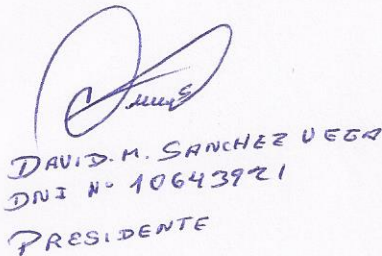 DAVID. M. SANCHEZ VEGA
DNI Nº 10643921
PRESIDENTE